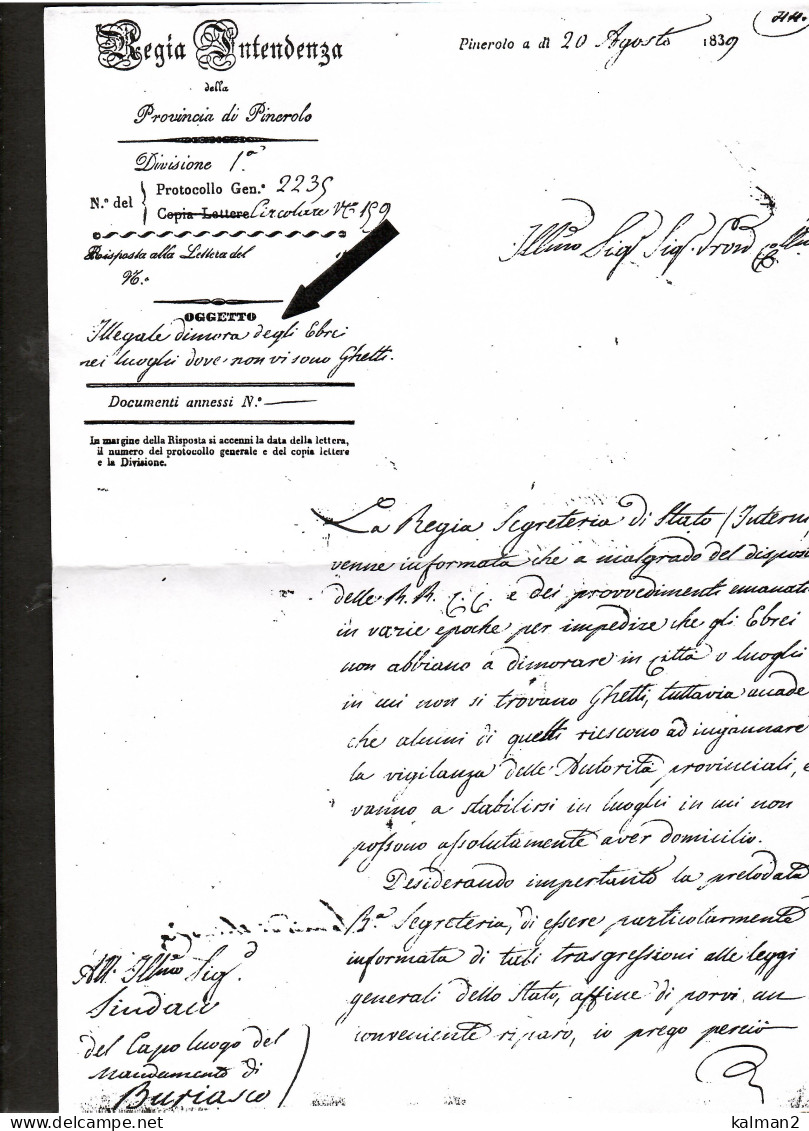 Regia Intendenza
della
Provincia di Pinerolo
Divisione 1.ª
N.º del
Protocollo Gen.º 2235
Copia Lettere Circolare N.º 159
Risposta alla Lettera del
N.º
OGGETTO
Illegale dimora degli Ebrei
nei luoghi dove non vi sono Ghetti.
Documenti annessi N.º
In margine della Risposta si accenni la data della lettera,
il numero del protocollo generale e del copia lettere
e la Divisione.
Pinerolo a dì 20 Agosto 1839
Ill.mo Sig.r Sig.r Pron
La Regia Segreteria di Stato (Intern
venne informata che a malgrado del dispos
delle R.R. C.C. e dei provvedimenti emanat
in varie epoche per impedire che gli Ebrei
non abbiano a dimorare in Città o luoghi
in cui non si trovano Ghetti, tuttavia accade
che alcuni di quelli riescono ad ingannare
la vigilanza delle Autorità provinciali, e
vanno a stabilirsi in luoghi in cui non
possono assolutamente aver domicilio.
Desiderando impertanto la prelodata
R.a Segreteria, di essere particolarmente
informata di tali trasgressioni alle leggi
generali dello Stato, affine di porvi un
conveniente riparo, io prego perciò
All' Ill.mo Sig.r
Sindaco
del Capo luogo del
Mandamento di
Buriasco
kalman2